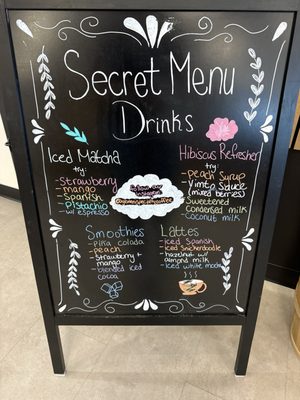 Secret Menu
Drinks
Iced Matcha
try:
- strawberry
- mango
- Spanish
- Pistachio
- w/ espresso
Hibiscus Refresher
try:
- peach syrup
- Vimto Sauce
(mixed berries)
- Sweetened
Condensed milk
- Coconut milk
Smoothies
- piña colada
- peach
- Strawberry +
mango
- blended iced
cocoa
Lattes
- Iced Spanish
- Iced Snickerdoodle
- hazelnut w/
almond milk
- Iced white mocha